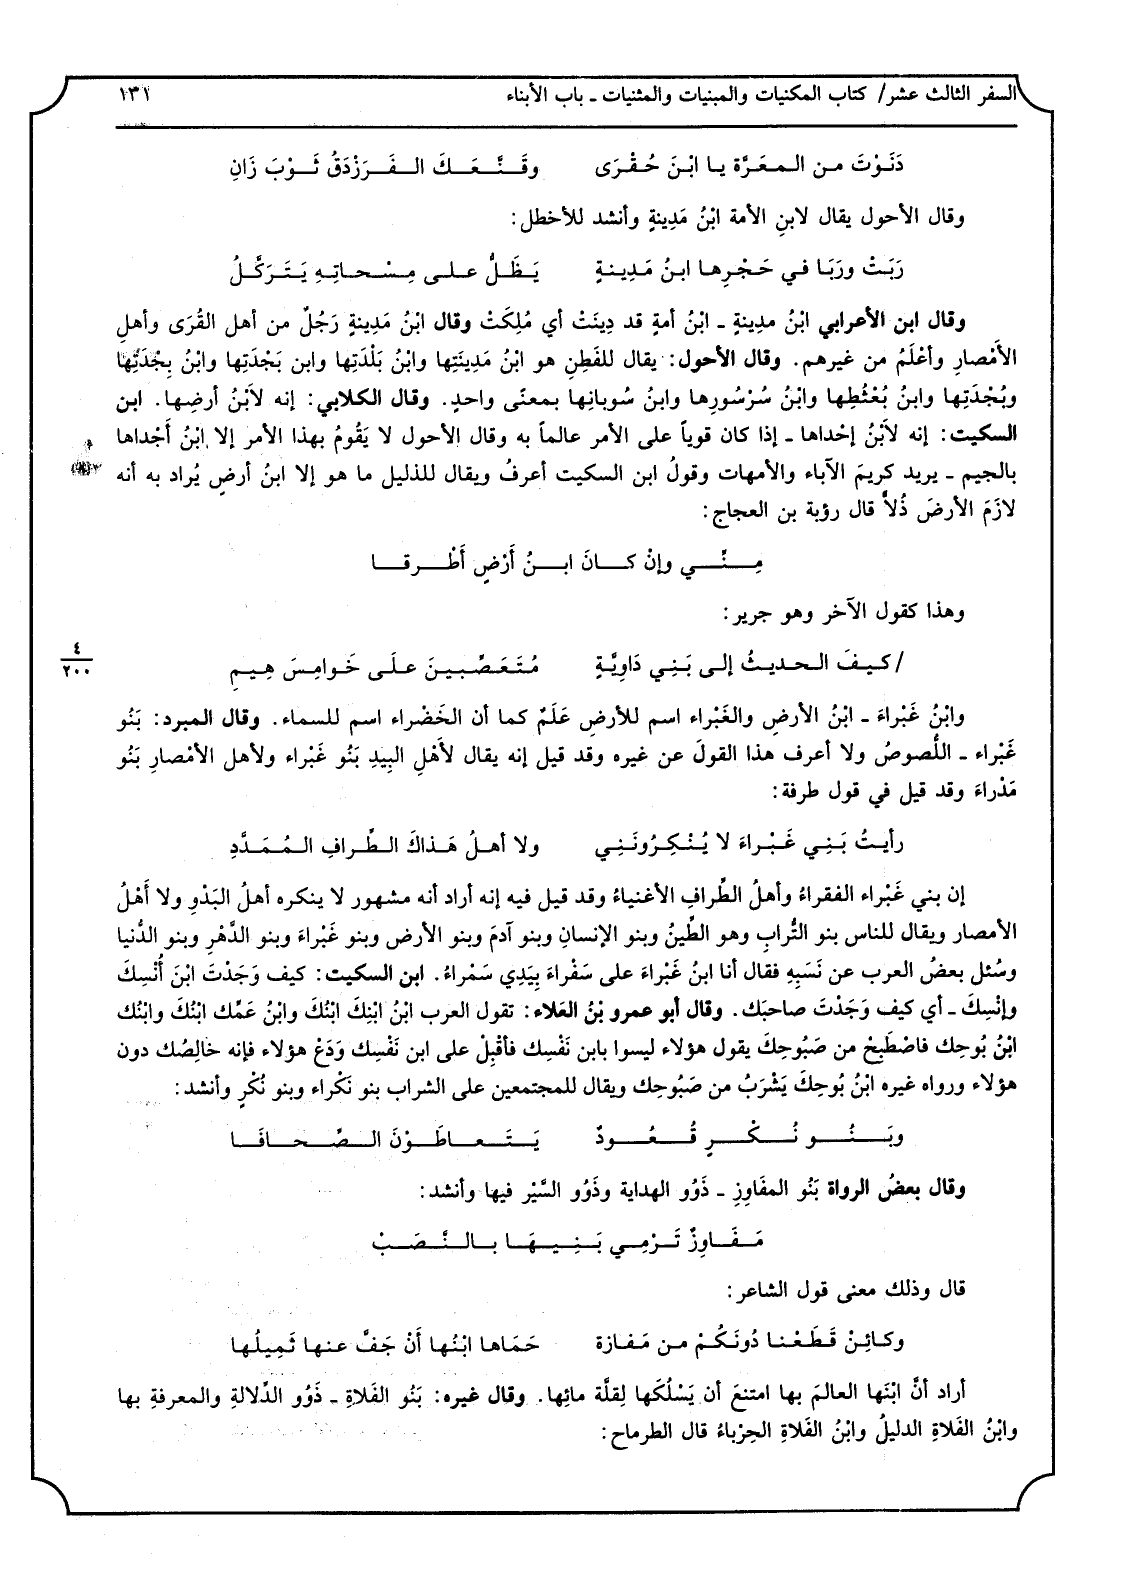 السفر الثالث عشر/ كتاب المكنيات والمبنيات والمثنيات ـ باب الأبناء ١٣١
دَنَوْتَ من المعَرَّة يا ابْنَ حُقْرَى وقَنَّعَكَ الفَرَزْدَقُ ثَوْبَ زَانِ
وقال الأحول يقال لابنِ الأمة ابْنُ مَدِينةٍ وأنشد للأخطل:
رَبَتْ ورَبَا في حَجْرِها ابنُ مَدِينةٍ يَظَلُّ على مِسْحاتِهِ يَتَرَكَّلُ
وقال ابن الأعرابي ابْنُ مدِينةٍ ـ ابْنُ أمةٍ قد دِينَتْ أي مُلِكَتْ وقال ابْنُ مَدِينةٍ رَجُلٌ من أهل القُرَى وأهلِ
الأَمْصارِ وأَعْلَمُ من غيرهم. وقال الأحول: يقال للفَطِنِ هو ابْنُ مَدِينَتِها وابْنُ بَلْدَتِها وابن بَجْدَتِها وابْنُ بِجْدَتِها
وبُجْدَتِها وابنُ بُعْثُطِها وابْنُ سُرْسُورِها وابنُ سُوبانِها بمعنًى واحدٍ. وقال الكلابي: إنه لَابْنُ أرضِها. ابن
السكيت: إنه لَابْنُ إحْداها ـ إذا كان قوياً على الأمر عالماً به وقال الأحول لا يَقُومُ بهذا الأمر إلا ابْنُ أَجْداها
بالجيم ـ يريد كريمَ الآباء والأمهات وقولُ ابن السكيت أعرفُ ويقال للذليل ما هو إلا ابنُ أرضٍ يُراد به أنه
لازَمَ الأرضَ ذُلاًّ قال رؤبة بن العجاج:
مِنِّي وإنْ كانَ ابنُ أَرْضٍ أَطْرقا
وهذا كقول الآخر وهو جرير:
/كيفَ الحديثُ إلى بَنِي دَاوِيَّةٍ مُتَعَصِّبينَ علَى خَوامِسَ هِيمِ
٤
٢٠٠
وابْنُ غَبْراءَ ـ ابْنُ الأرضِ والغَبْراء اسم للأرضِ عَلَمٌ كما أن الخَضْراء اسم للسماء. وقال المبرد: بَنُو
غَبْراء ـ اللُّصوصُ ولا أعرف هذا القولَ عن غيره وقد قيل إنه يقال لأَهْلِ البِيدِ بَنُو غَبْراء ولأهل الأمْصارِ بَنُو
مَدْراءَ وقد قيل في قول طرفة:
رأيتُ بَنِي غَبْراءَ لا يُنْكِرُونَنِي ولا أهلُ هَذاكَ الطِّرافِ المُمَدَّدِ
إن بني غَبْراء الفقراءُ وأهلُ الطِّرافِ الأغنياءُ وقد قيل فيه إنه أراد أنه مشهور لا ينكره أهلُ البَدْوِ ولا أَهْلُ
الأمصار ويقال للناس بنو التُّرابِ وهو الطِّينُ وبنو الإنسانِ وبنو آدمَ وبنو الأرض وبنو غَبْراءَ وبنو الدَّهْرِ وبنو الدُّنيا
وسُئل بعضُ العرب عن نَسَبِهِ فقال أنا ابنُ غَبْراءَ على سَفْراءَ بِيَدِي سَمْراءُ. ابن السكيت: كيف وَجَدْتَ ابْنَ أُنْسِكَ
وإنْسِكَ ـ أي كيف وَجَدْتَ صاحبَك. وقال أبو عمرو بْنُ العَلاء: تقول العرب ابْنُ ابْنِكَ ابْنُكَ وابْنُ عَمِّك ابْنُكَ وابْنُك
ابْنُ بُوحِك فاصْطَبِحْ من صَبُوحِكَ يقول هؤلاء ليسوا بابن نَفْسِك فأَقْبِلْ على ابن نَفْسِك وَدَعْ هؤلاء فإنه خالِصُك دون
هؤلاء ورواه غيره ابْنُ بُوحِكَ يَشْرَبُ من صَبُوحِك ويقال للمجتمعين على الشراب بنو نَكْراء وبنو نُكْرٍ وأنشد:
وبَنُو نُكْرٍ قُعُودٌ يَتَعاطَوْنَ الصِّحافَا
وقال بعضُ الرواة بَنُو المفَاوِزِ ـ ذَوُو الهداية وذَوُو السَّيْر فيها وأنشد:
مَفَاوِزٌ تَرْمِي بَنِيهَا بالنَّصَبْ
قال وذلك معنى قول الشاعر:
وكائِنْ قَطَعْنا دُونَكُمْ من مَفازة حَمَاها ابْنُها أَنْ جَفَّ عنها ثَمِيلُها
أراد أنَّ ابْنَها العالمَ بها امتنعَ أن يَسْلُكَها لِقلَّة مائِها. وقال غيره: بَنُو الفَلاةِ ـ ذَوُو الدِّلالةِ والمعرفةِ بها
وابْنُ الفَلاةِ الدليلُ وابْنُ الفَلاةِ الحِرْباءُ قال الطرماح: